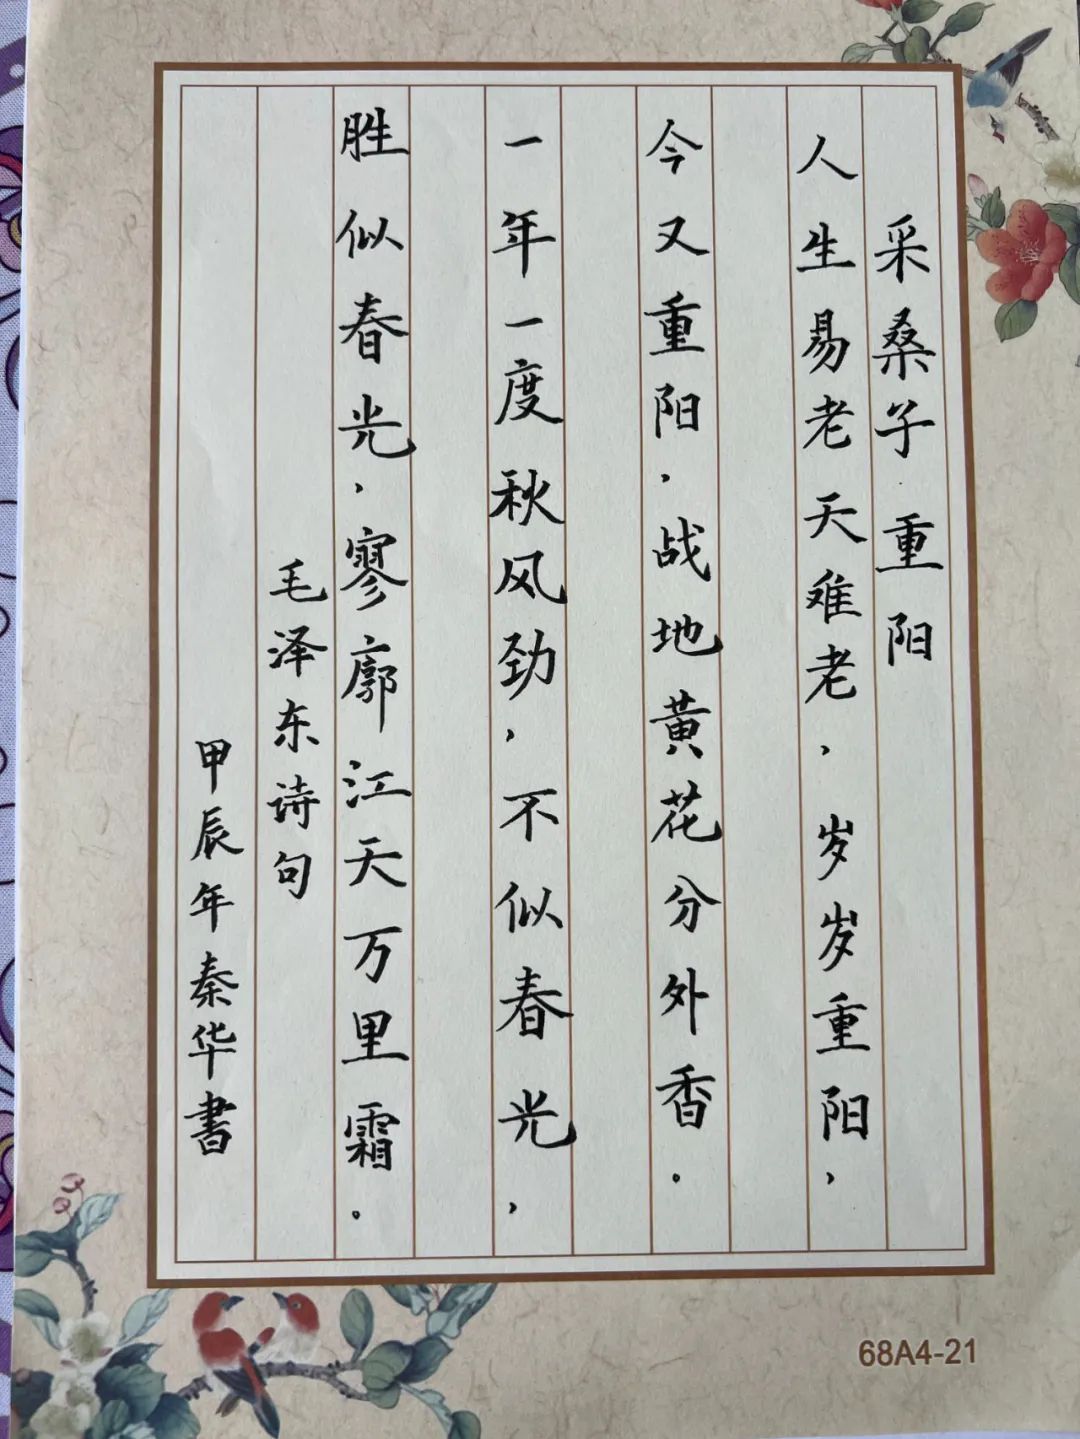 采桑子·重阳
人生易老天难老，岁岁重阳，
今又重阳，战地黄花分外香。
一年一度秋风劲，不似春光，
胜似春光，寥廓江天万里霜。
毛泽东诗句
甲辰年秦华書
68A4-21